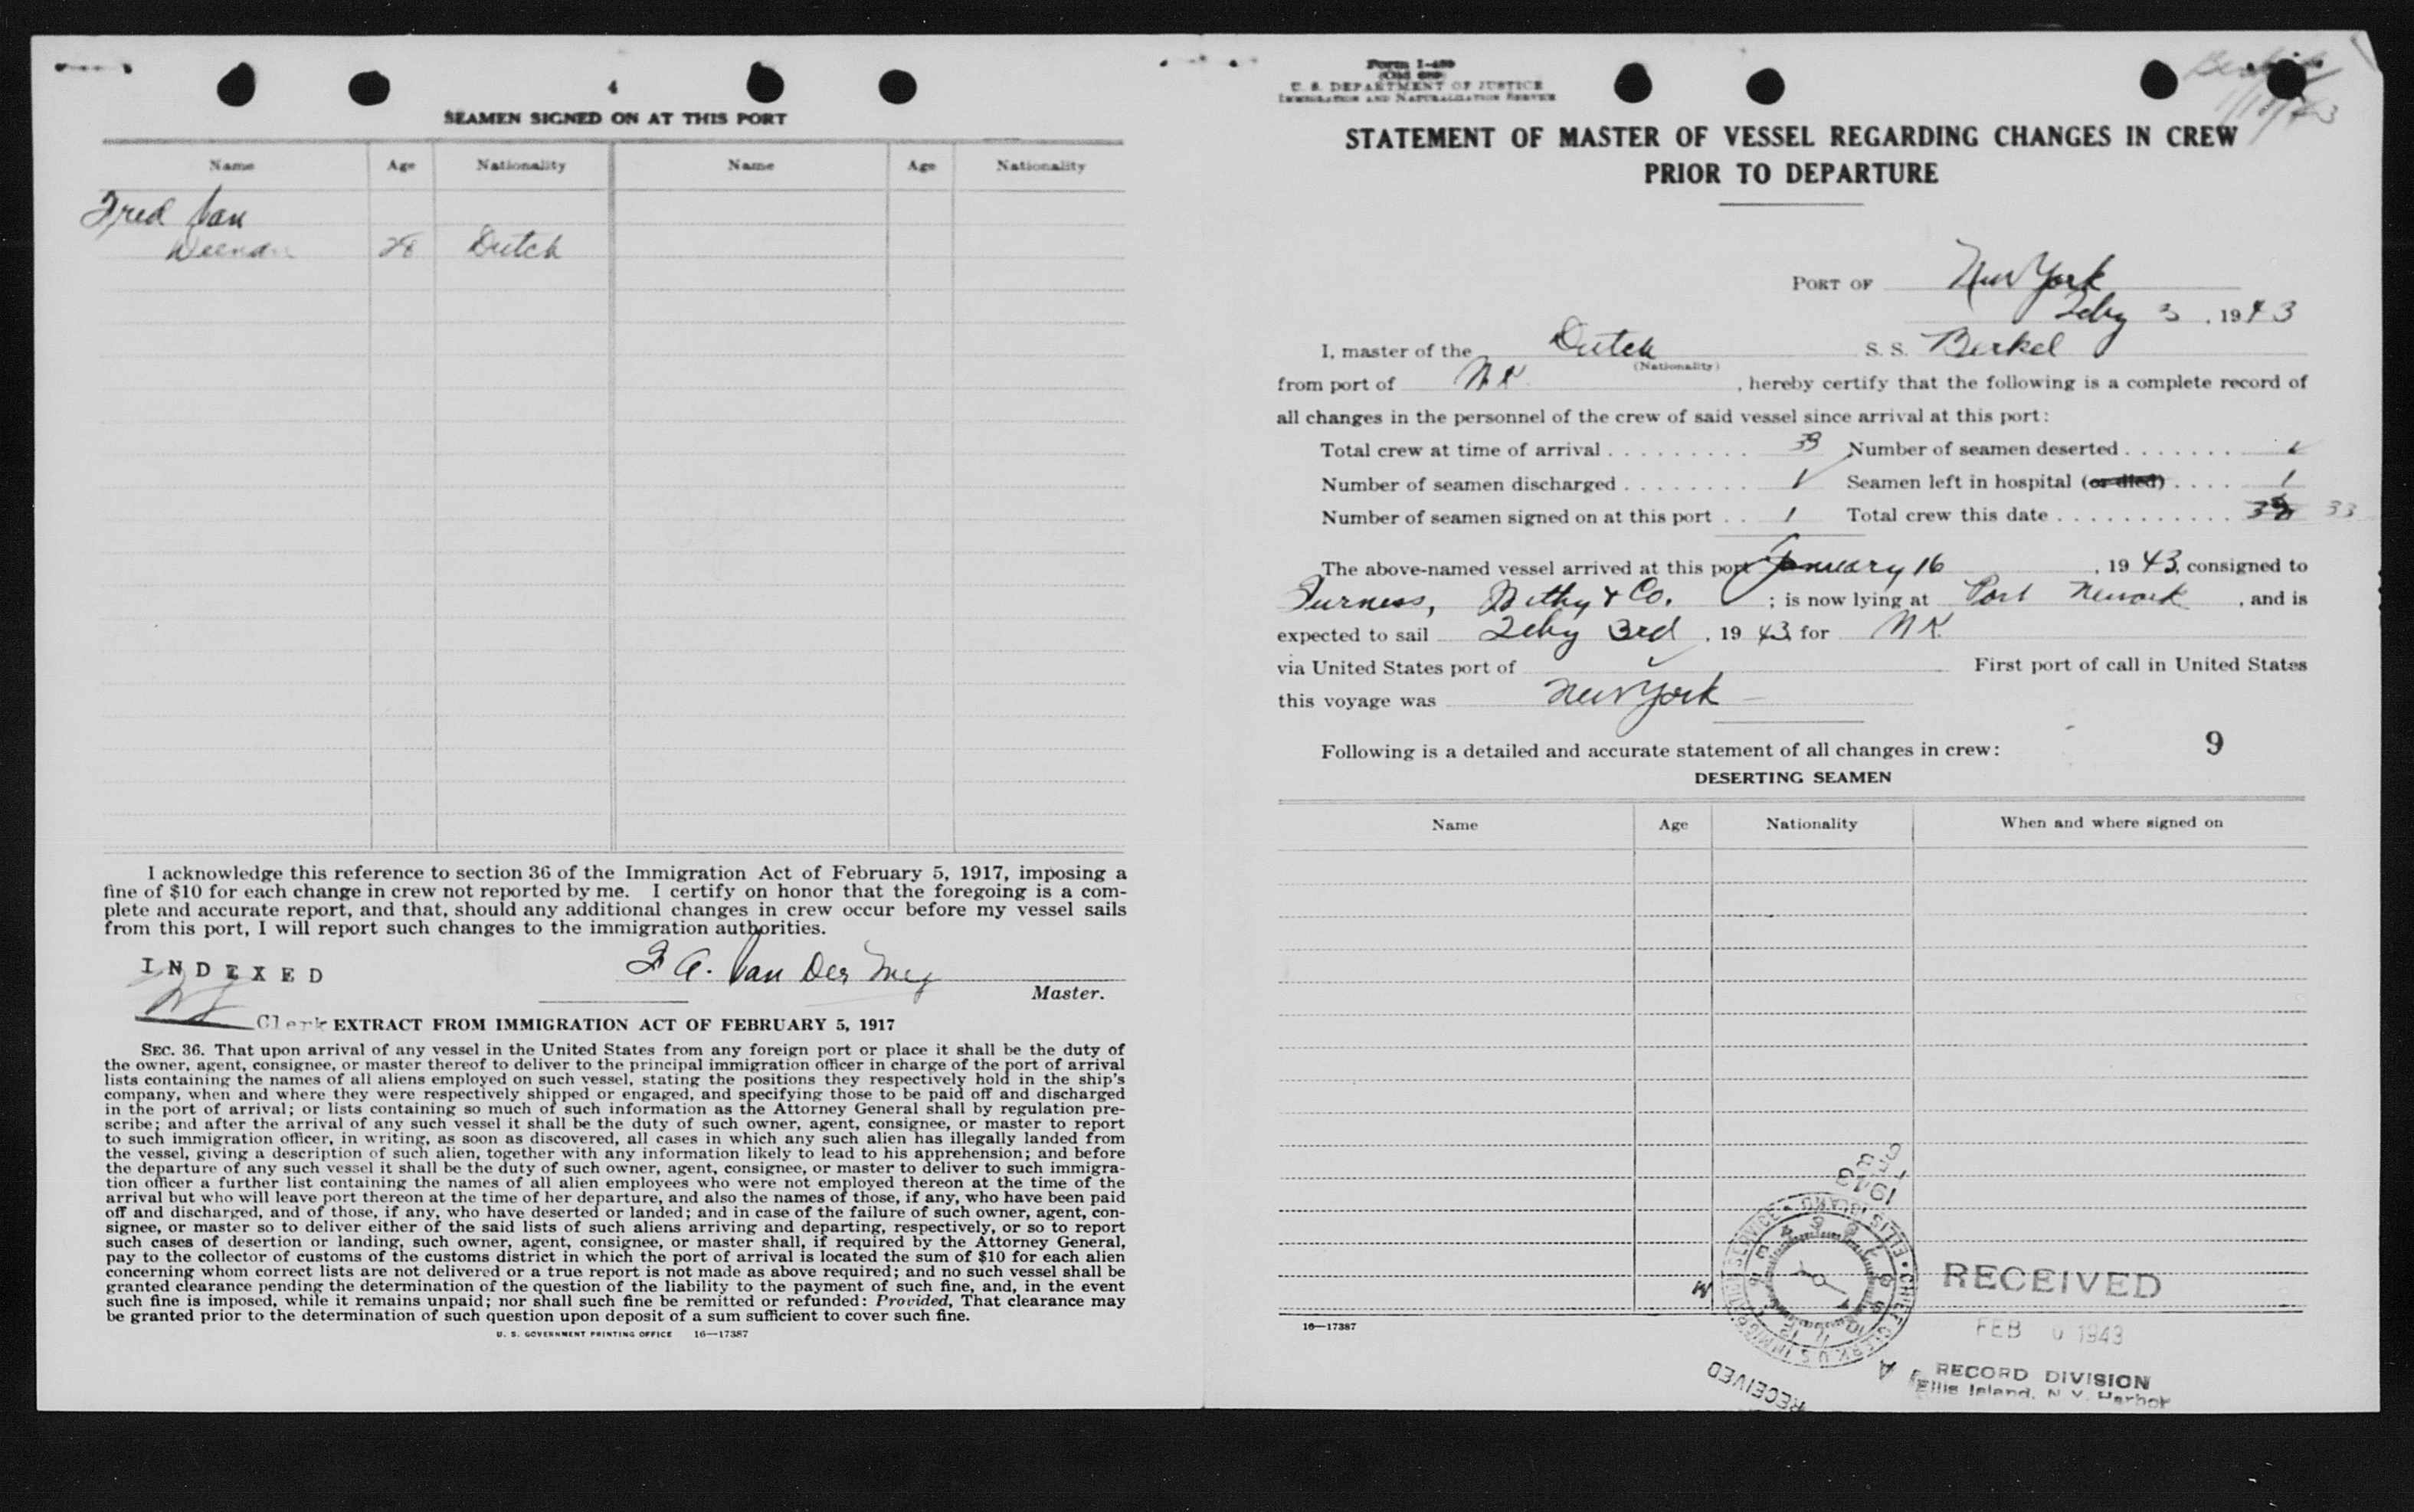 4
SEAMEN SIGNED ON AT THIS PORT
Name Age Nationality Name Age Nationality
Fred Van
28 Dutch
I acknowledge this reference to section 36 of the Immigration Act of February 5, 1917, imposing a
fine of $10 for each change in crew not reported by me. I certify on honor that the foregoing is a com-
plete and accurate report, and that, should any additional changes in crew occur before my vessel sails
from this port, I will report such changes to the immigration authorities.
INDEXED
F A. Van Der Mey
Master.
Clerk
EXTRACT FROM IMMIGRATION ACT OF FEBRUARY 5, 1917
SEC. 36. That upon arrival of any vessel in the United States from any foreign port or place it shall be the duty of
the owner, agent, consignee, or master thereof to deliver to the principal immigration officer in charge of the port of arrival
lists containing the names of all aliens employed on such vessel, stating the positions they respectively hold in the ship's
company, when and where they were respectively shipped or engaged, and specifying those to be paid off and discharged
in the port of arrival; or lists containing so much of such information as the Attorney General shall by regulation pre-
scribe; and after the arrival of any such vessel it shall be the duty of such owner, agent, consignee, or master to report
to such immigration officer, in writing, as soon as discovered, all cases in which any such alien has illegally landed from
the vessel, giving a description of such alien, together with any information likely to lead to his apprehension; and before
the departure of any such vessel it shall be the duty of such owner, agent, consignee, or master to deliver to such immigra-
tion officer a further list containing the names of all alien employees who were not employed thereon at the time of the
arrival but who will leave port thereon at the time of her departure, and also the names of those, if any, who have been paid
off and discharged, and of those, if any, who have deserted or landed; and in case of the failure of such owner, agent, con-
signee, or master so to deliver either of the said lists of such aliens arriving and departing, respectively, or so to report
such cases of desertion or landing, such owner, agent, consignee, or master shall, if required by the Attorney General,
pay to the collector of customs of the customs district in which the port of arrival is located the sum of $10 for each alien
concerning whom correct lists are not delivered or a true report is not made as above required; and no such vessel shall be
granted clearance pending the determination of the question of the liability to the payment of such fine, and, in the event
such fine is imposed, while it remains unpaid; nor shall such fine be remitted or refunded: Provided, That clearance may
be granted prior to the determination of such question upon deposit of a sum sufficient to cover such fine.
U. S. GOVERNMENT PRINTING OFFICE 16—17387
Form I-489
U. S. DEPARTMENT OF JUSTICE
IMMIGRATION AND NATURALIZATION SERVICE
STATEMENT OF MASTER OF VESSEL REGARDING CHANGES IN CREW
PRIOR TO DEPARTURE
PORT OF New York
Feby 3, 1943
I, master of the Dutch S. S. Berkel
(Nationality)
from port of N.K. , hereby certify that the following is a complete record of
all changes in the personnel of the crew of said vessel since arrival at this port:
Total crew at time of arrival . . . . . . . . . 33 Number of seamen deserted . . . . . . .
Number of seamen discharged . . . . . . . . 1 Seamen left in hospital (or died) . . . . 1
Number of seamen signed on at this port . . 1 Total crew this date . . . . . . . . . . . 33
The above-named vessel arrived at this port January 16 , 1943, consigned to
Furness, Withy & Co. ; is now lying at Port Newark , and is
expected to sail Feby 3rd , 1943, for N.K.
via United States port of First port of call in United States
this voyage was New York
Following is a detailed and accurate statement of all changes in crew: 9
DESERTING SEAMEN
Name Age Nationality When and where signed on
1943
RECEIVED
FEB 1943
RECORD DIVISION
Ellis Island, N. Y. Harbor
16—17387
RECEIVED